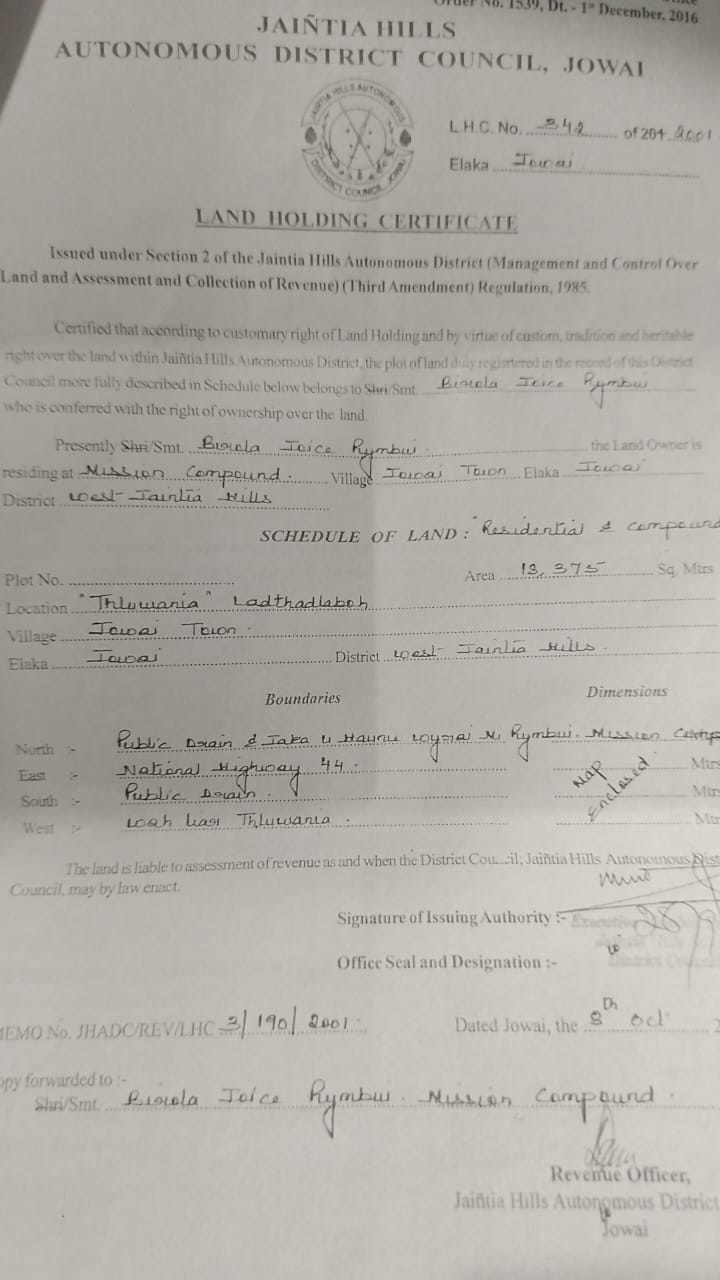 Order No. 1539, Dt. - 1st December, 2016
JAIÑTIA HILLS
AUTONOMOUS DISTRICT COUNCIL, JOWAI
JAIÑTIA HILLS AUTONOMOUS DISTRICT COUNCIL, JOWAI
L.H.C. No. 342 of 201 2001
Elaka Jowai
LAND HOLDING CERTIFICATE
Issued under Section 2 of the Jaintia Hills Autonomous District (Management and Control Over
Land and Assessment and Collection of Revenue) (Third Amendment) Regulation, 1985.
Certified that according to customary right of Land Holding and by virtue of custom, tradition and heritable
right over the land within Jaiñtia Hills Autonomous District, the plot of land duly regisrtered in the record of this District
Council more fully described in Schedule below belongs to Shri/Smt. Joice Rymbui
who is conferred with the right of ownership over the land.
Presently Shri/Smt. Joice Rymbui the Land Owner is
residing at Mission Compound. Village Jowai Town Elaka Jowai
District West Jaintia Hills
SCHEDULE OF LAND : "Residential & Compound
Plot No.
Area 13,375 Sq. Mtrs
Location "Thluwania" Ladthadlaboh
Village Jowai Town.
Elaka Jowai District West Jaintia Hills.
Boundaries Dimensions
North :- Public Drain & Rymbui. Mission
East :- National Highway 44. Mtrs
South :- Public Drain. Map Enclosed Mtrs
West :- Thluwania. Mtr
The land is liable to assessment of revenue as and when the District Cou...cil; Jaiñtia Hills Autonomous Dist
Council, may by law enact.
Signature of Issuing Authority :-
Office Seal and Designation :- District Council
MEMO No. JHADC/REV/LHC 3/190/2001. Dated Jowai, the 8th Oct 2
opy forwarded to :-
Shri/Smt. Joice Rymbui. Mission Compound.
Revenue Officer,
Jaiñtia Hills Autonomous District
Jowai